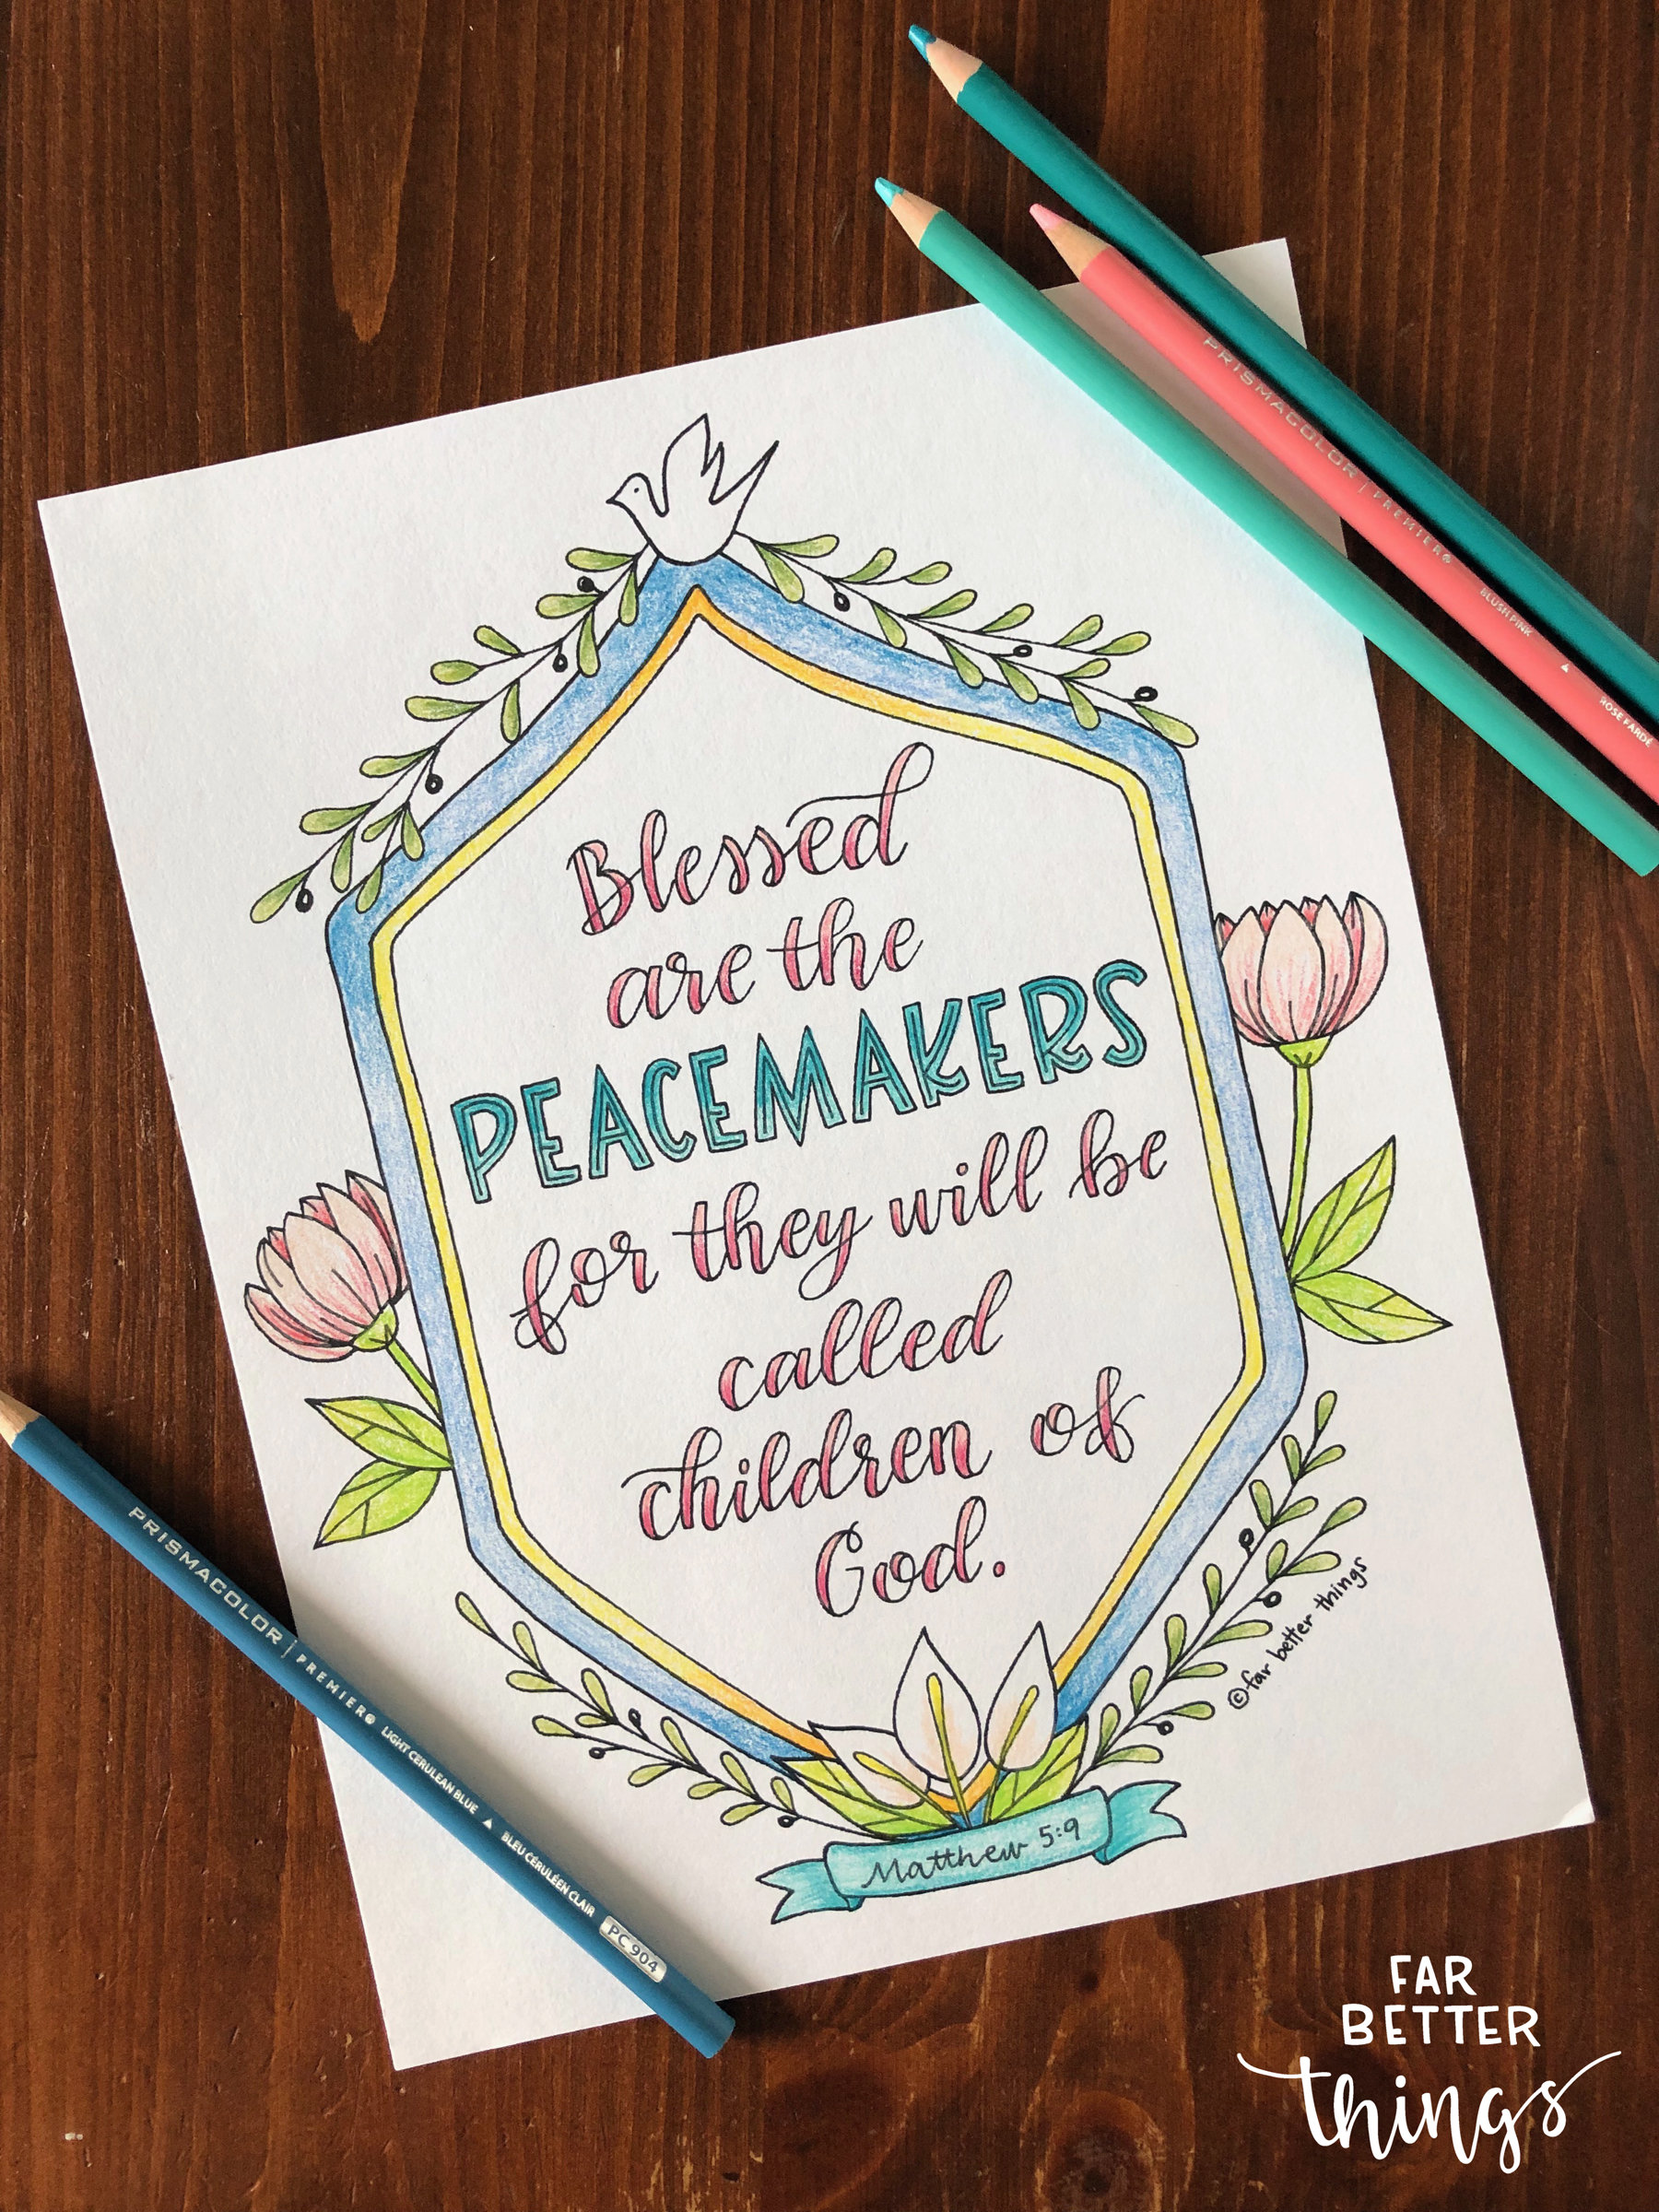 PRISMACOLOR | PREMIER®
BLUSH PINK
ROSE FARDÉ
Blessed
are the
PEACEMAKERS
for they will be
called
children of
God.
©far better things
Matthew 5:9
PRISMACOLOR | PREMIER® LIGHT CERULEAN BLUE ▲ BLEU CÉRULÉEN CLAIR PC 904
FAR
BETTER
things